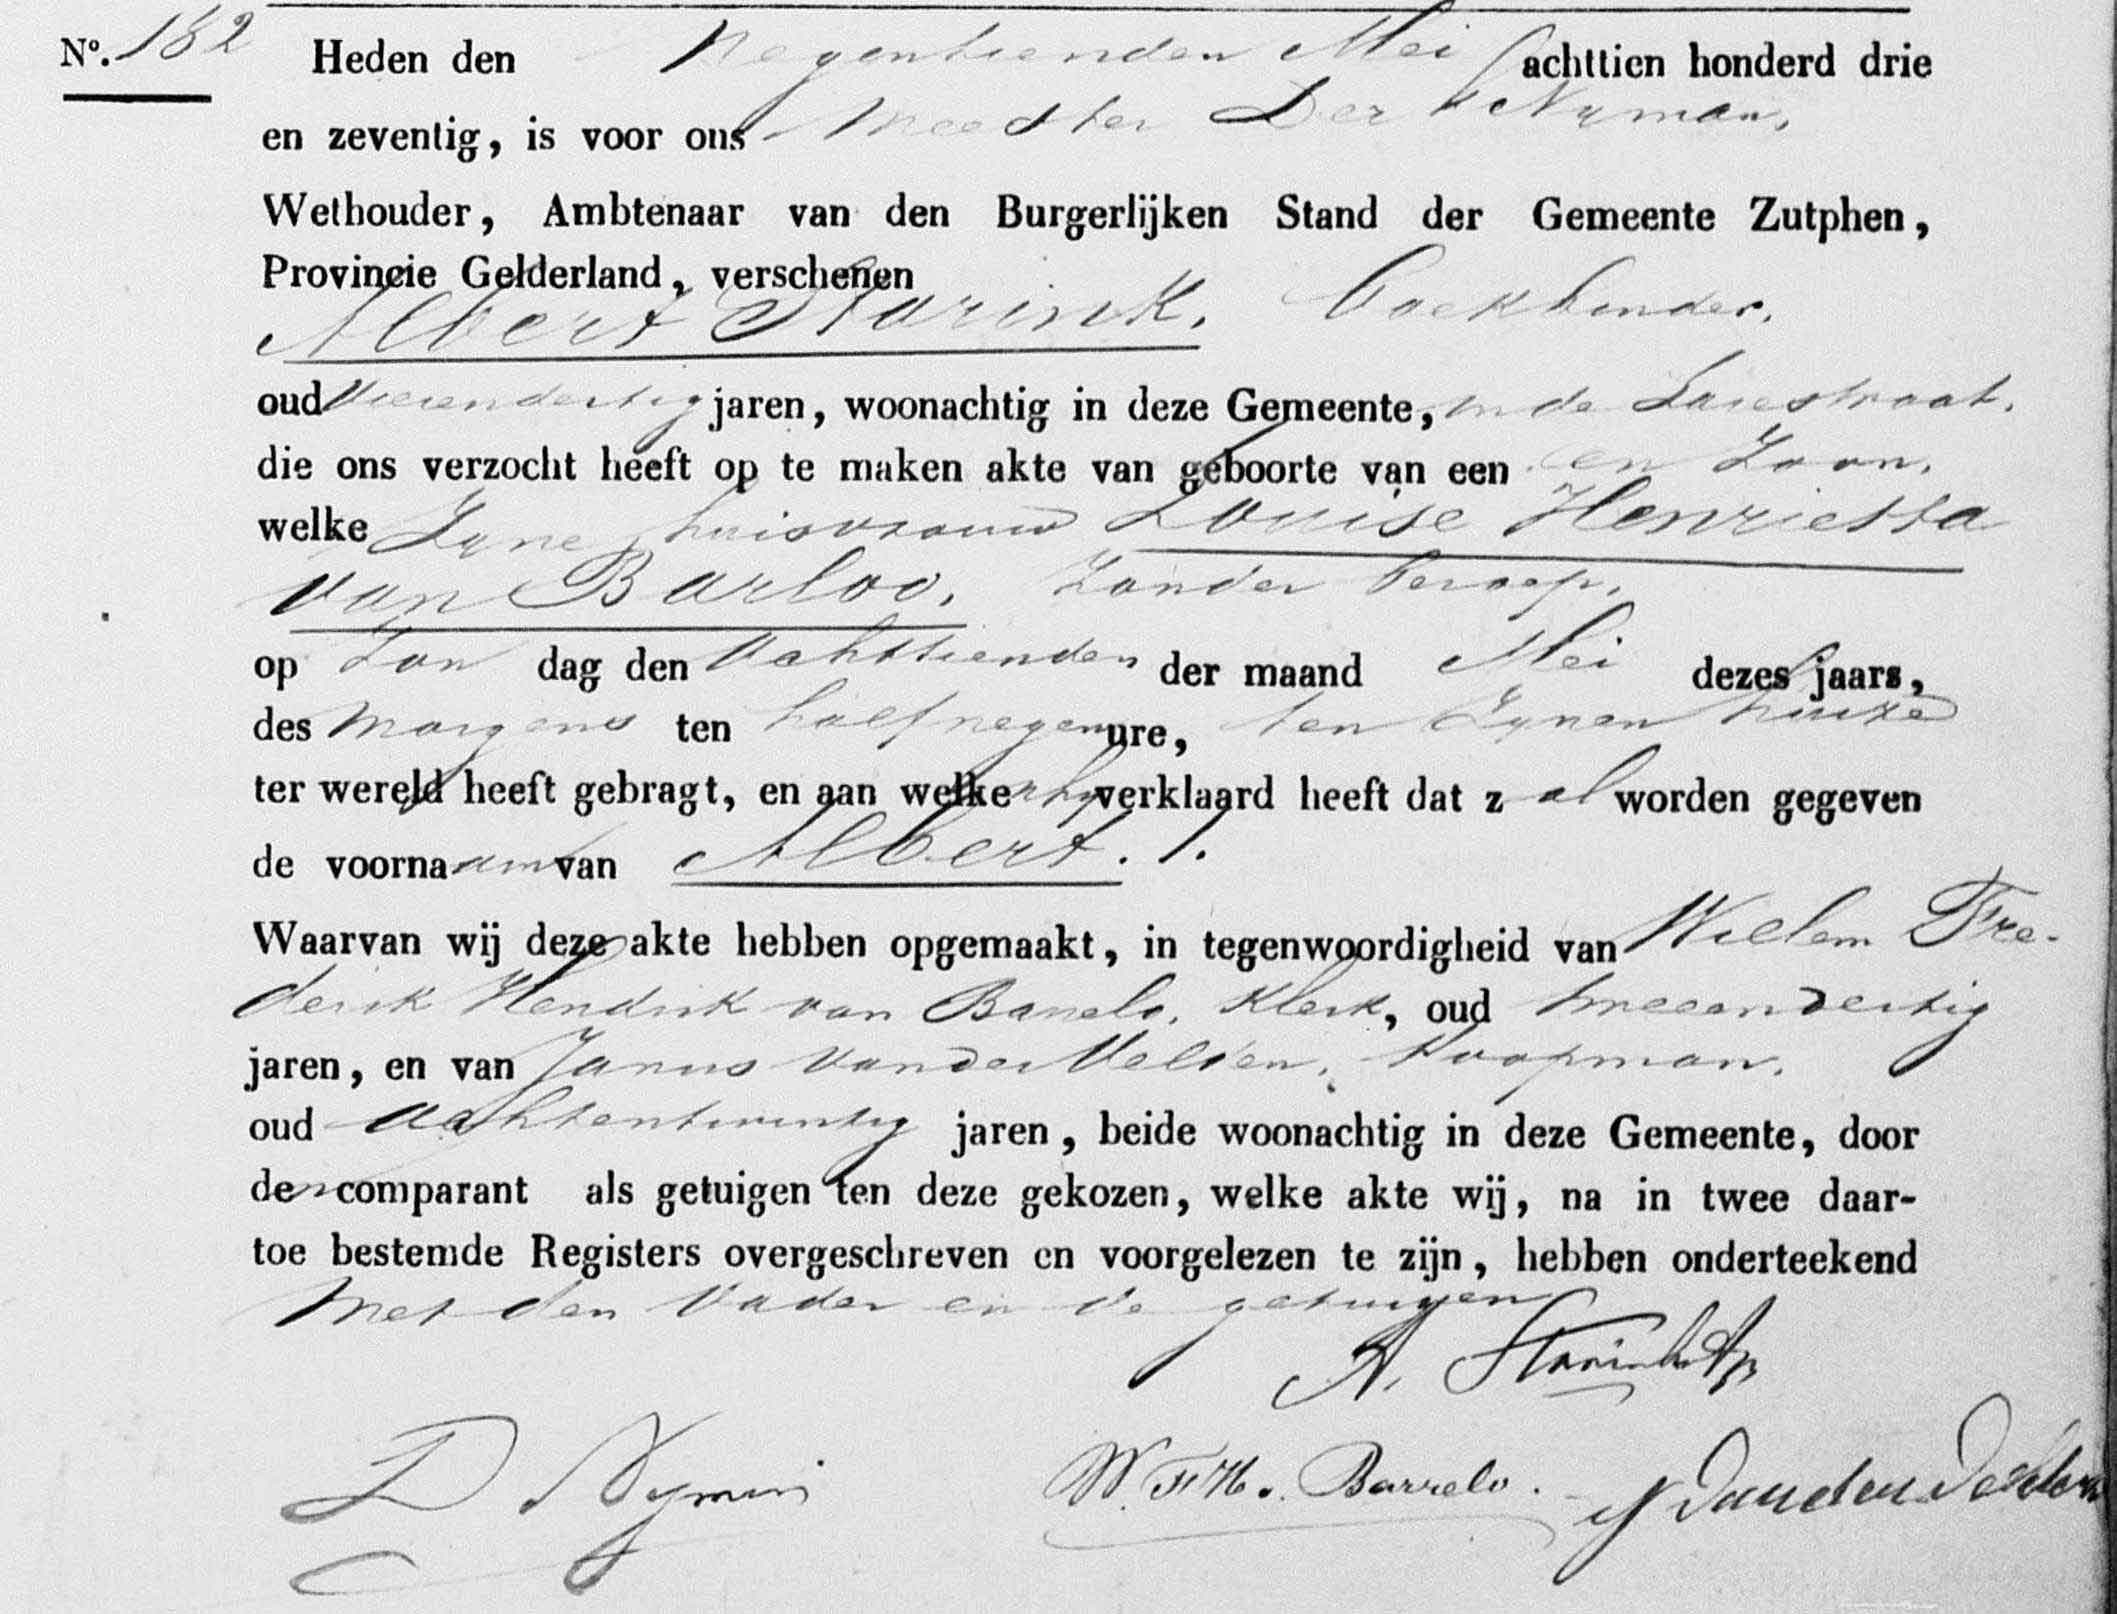 No. 182 Heden den Negentienden Mei achttien honderd drie
en zeventig, is voor ons Meester Derk Nyman,
Wethouder, Ambtenaar van den Burgerlijken Stand der Gemeente Zutphen,
Provincie Gelderland, verschenen
Albert Starink, boekbinder,
oud Vierendertig jaren, woonachtig in deze Gemeente, in de Laarstraat,
die ons verzocht heeft op te maken akte van geboorte van een en Zoon,
welke Zyne huisvrouw Louise Henrietta
van Barloo, Zonder beroep,
op Zon dag den Achttienden der maand Mei dezes jaars,
des Morgens ten half negen ure, ten Zynen huize
ter wereld heeft gebragt, en aan welke verklaard heeft dat z al worden gegeven
de voorna am van Albert.
Waarvan wij deze akte hebben opgemaakt, in tegenwoordigheid van Willem Fre-
derik Hendrik van Barrelo, Klerk, oud tweeendertig
jaren, en van Janus van der Velden, Koopman,
oud Achtentwintig jaren, beide woonachtig in deze Gemeente, door
den comparant als getuigen ten deze gekozen, welke akte wij, na in twee daar-
toe bestemde Registers overgeschreven en voorgelezen te zijn, hebben onderteekend
Met den Vader en de getuigen
A. Starink
D Nyman W. F. H. v. Barrelo. J van der Velden